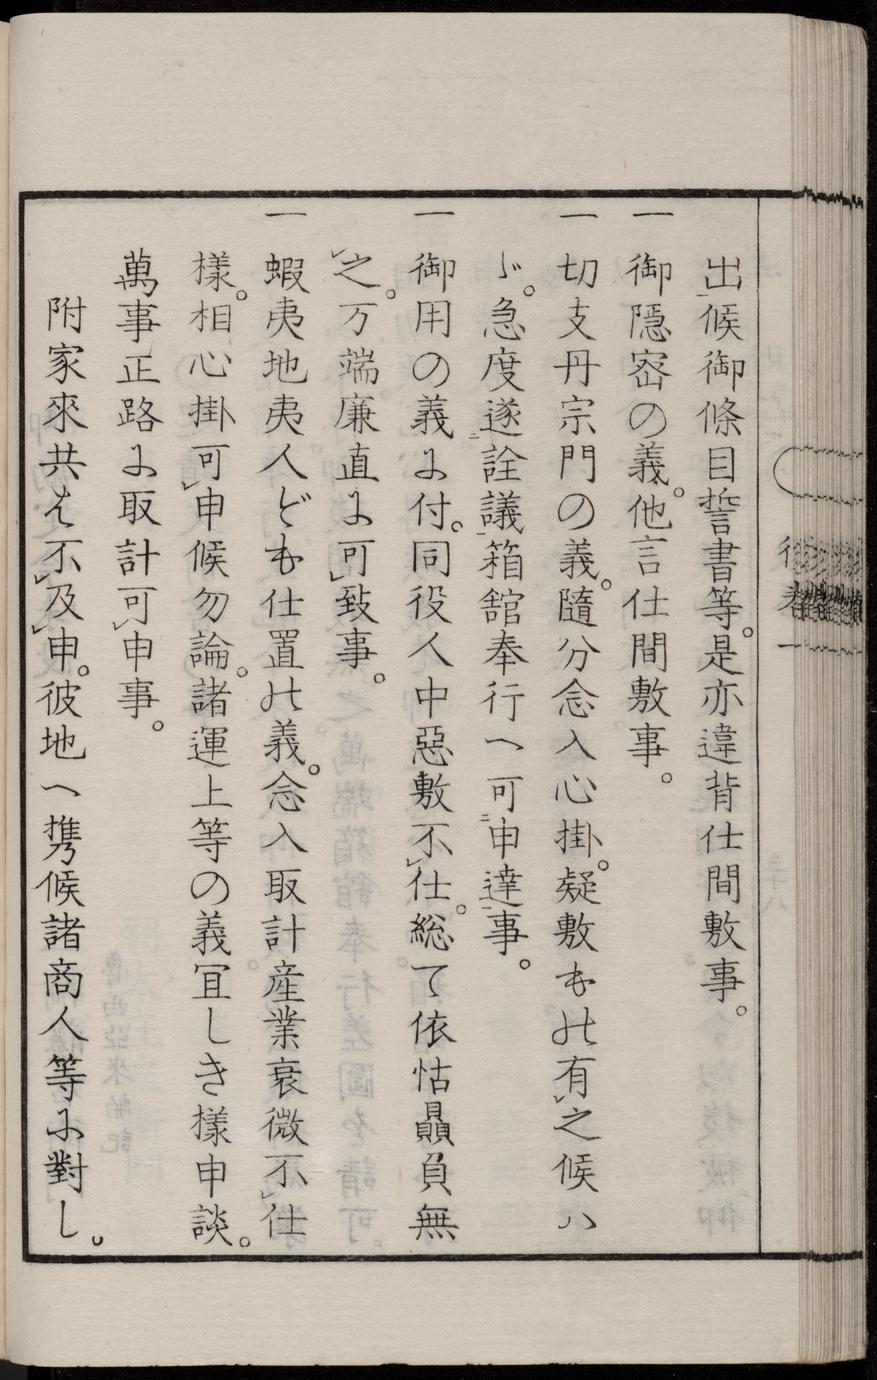 出候御條目誓書等。是亦違背仕間敷事。
一御隠密の義。他言仕間敷事。
一切支丹宗門の義。隨分念入心掛。疑敷もの有㆑之候ハ
ゞ。急度遂㆓詮議㆒箱舘奉行へ可㆓申達㆒事。
一御用の義に付。同役人中惡敷不㆑仕。総て依怙贔負無
㆑之。万端廉直に可㆑致事。
一蝦夷地夷人ども仕置の義。念入取計産業衰微不㆑仕
樣。相心掛可㆑申候勿論。諸運上等の義冝しき樣申談。
萬事正路に取計可㆑申事。
附家來共は不㆑及㆑申。彼地へ携候諸商人等に對し。